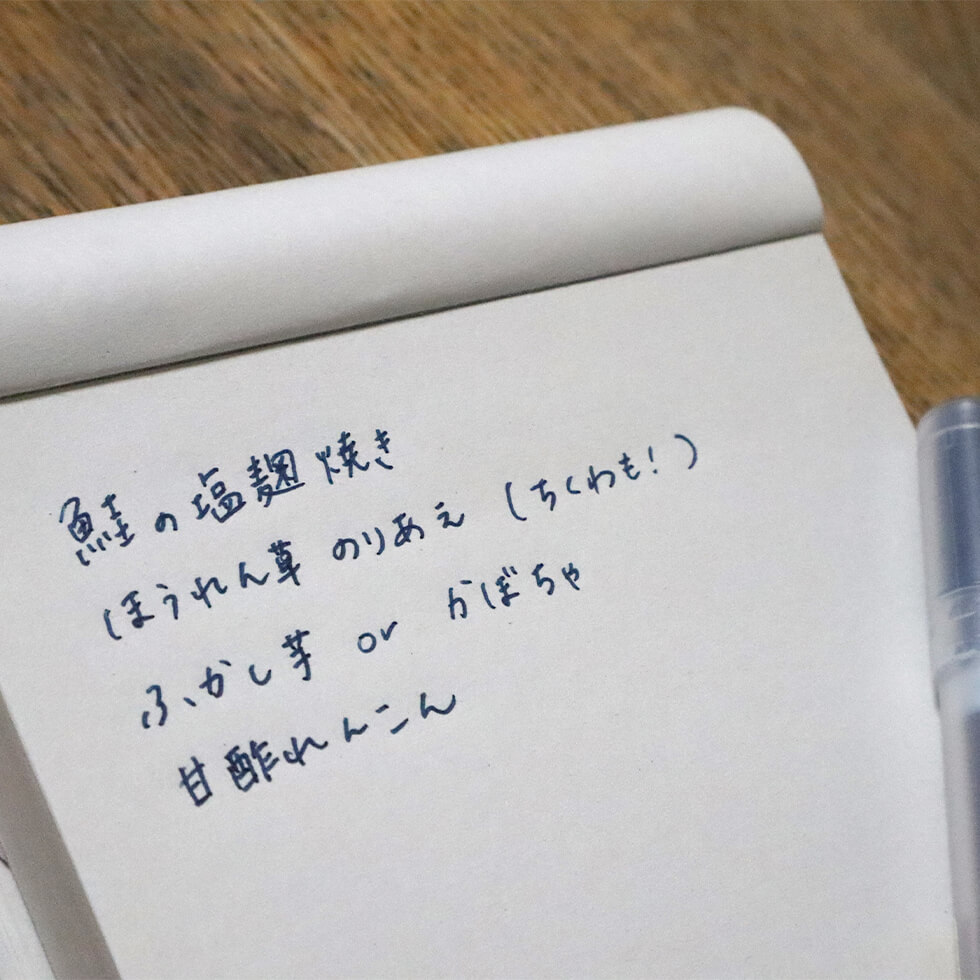 鮭の塩麹焼き
ほうれん草 のりあえ (ちくわも!)
ふかし芋 or かぼちゃ
甘酢れんこん